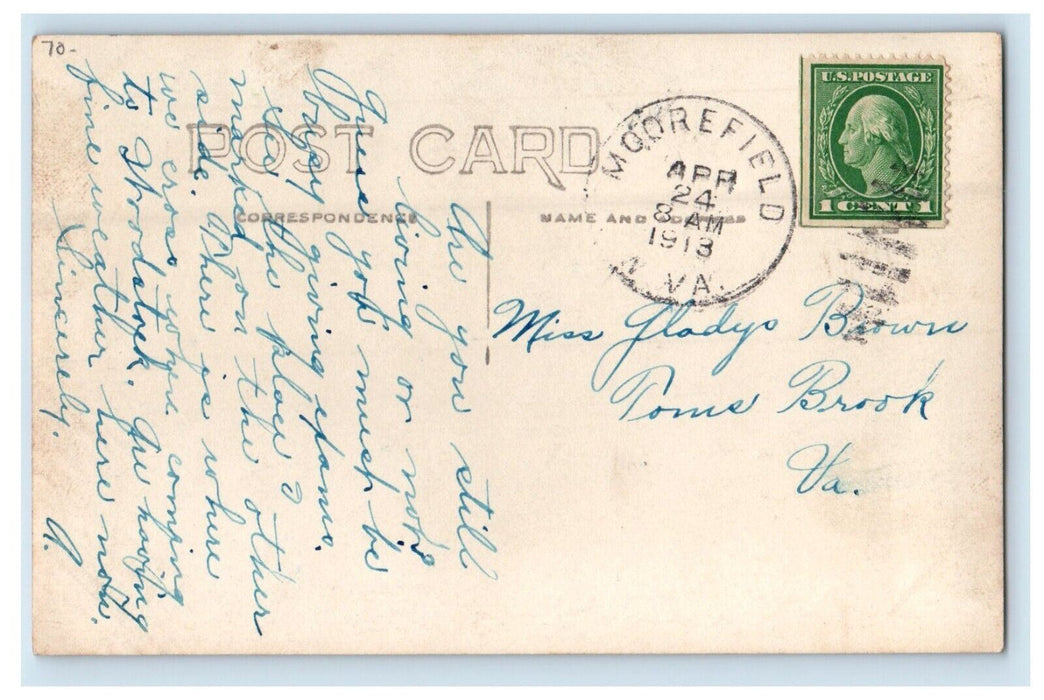 70-
POST CARD
CORRESPONDENCE
NAME AND ADDRESS
MOOREFIELD
APR
24
8 AM
1913
W. VA.
U.S. POSTAGE
1 CENT 1
Miss Gladys Brown
Toms Brook
Va.
Are you still
living or not?
Guess you must be
busy giving exams.
See the place I
marked on the other
side. There is where
we cross when coming
to Woodstock. having
fine weather here now.
Sincerely,
A.